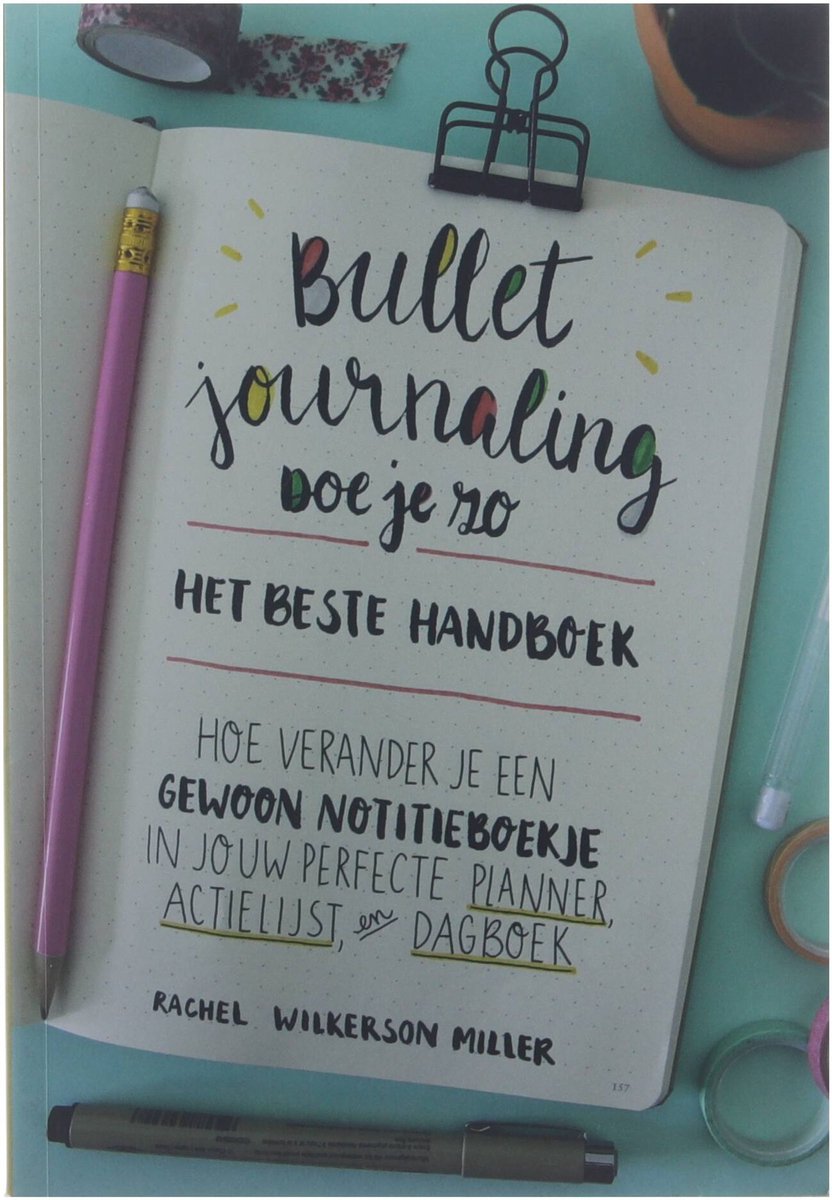 Bullet
journaling
Doe je zo
HET BESTE HANDBOEK
HOE VERANDER JE EEN
GEWOON NOTITIEBOEKJE
IN JOUW PERFECTE PLANNER,
ACTIELIJST, en DAGBOEK
RACHEL WILKERSON MILLER
157